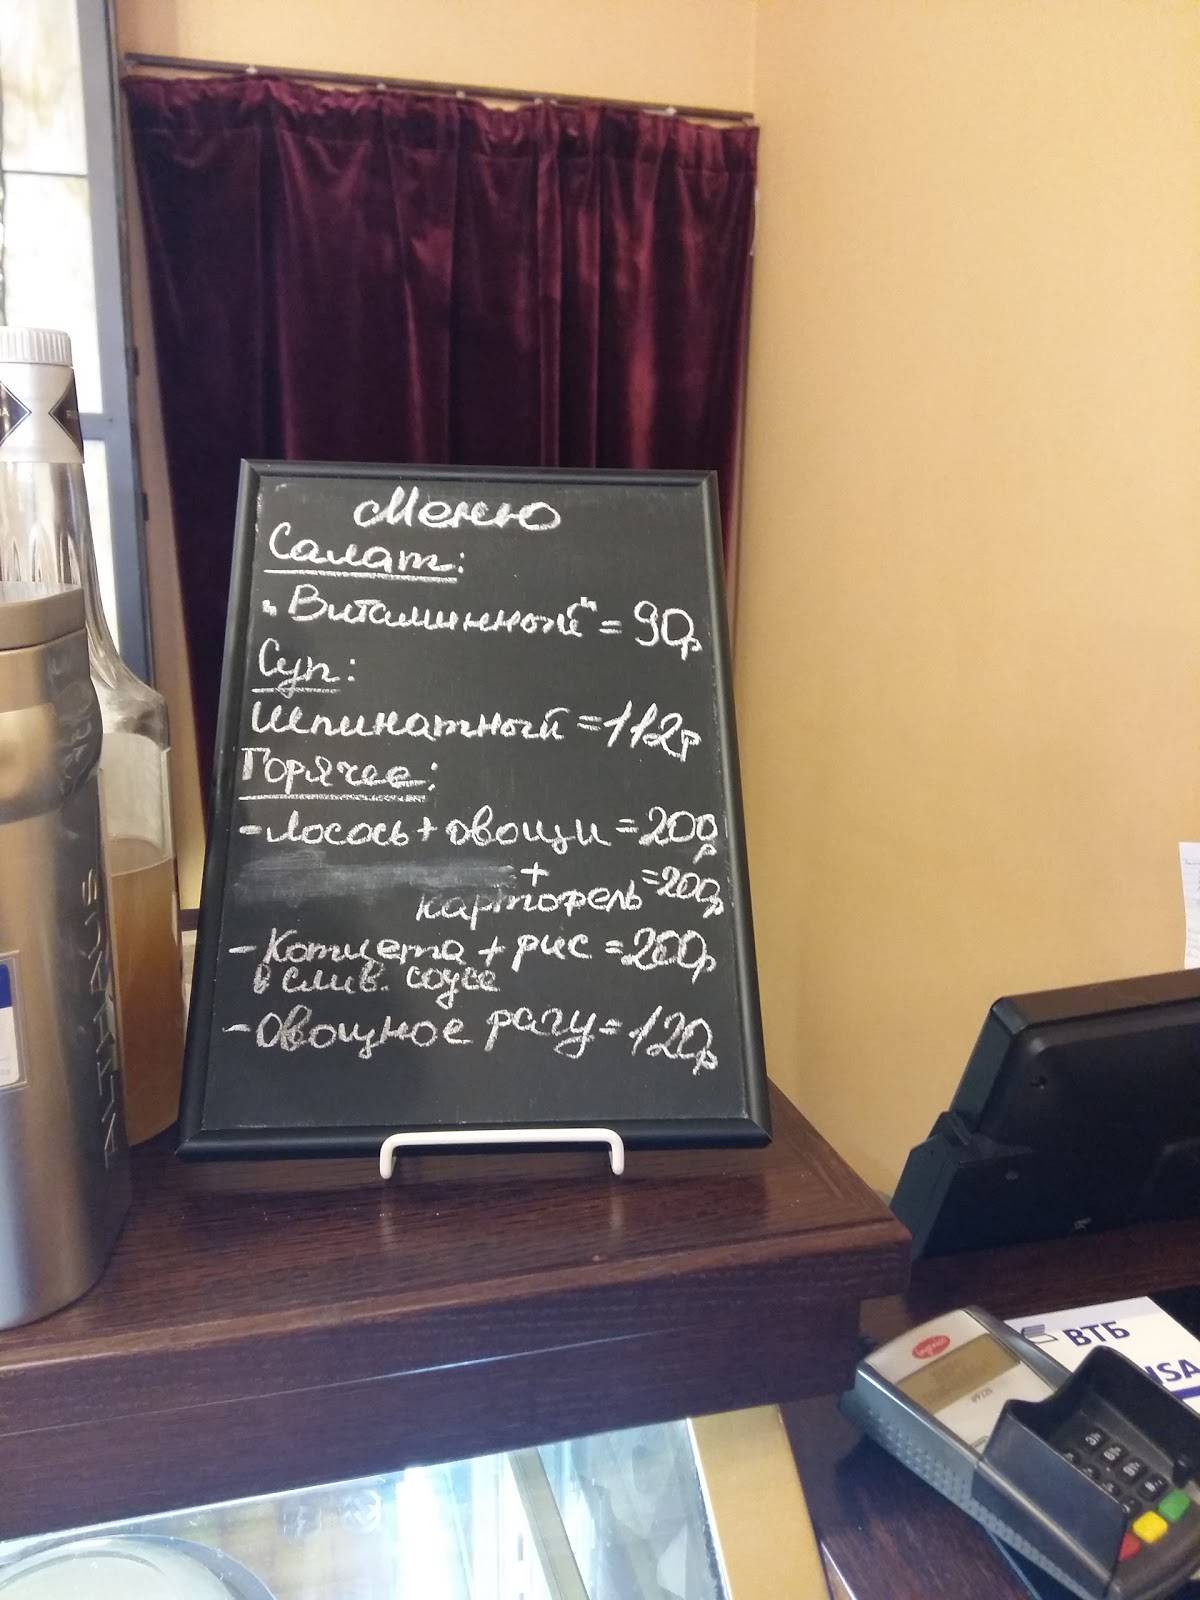 Меню
Салат:
"Витаминный" = 90р
Суп:
Шпинатный = 112р
Горячее:
- Лосось + овощи = 200р
+
картофель = 200р
- Котлета + рис = 200р
в слив. соусе
- Овощное рагу = 120р
ALTHAUS
ingenico
ВТБ